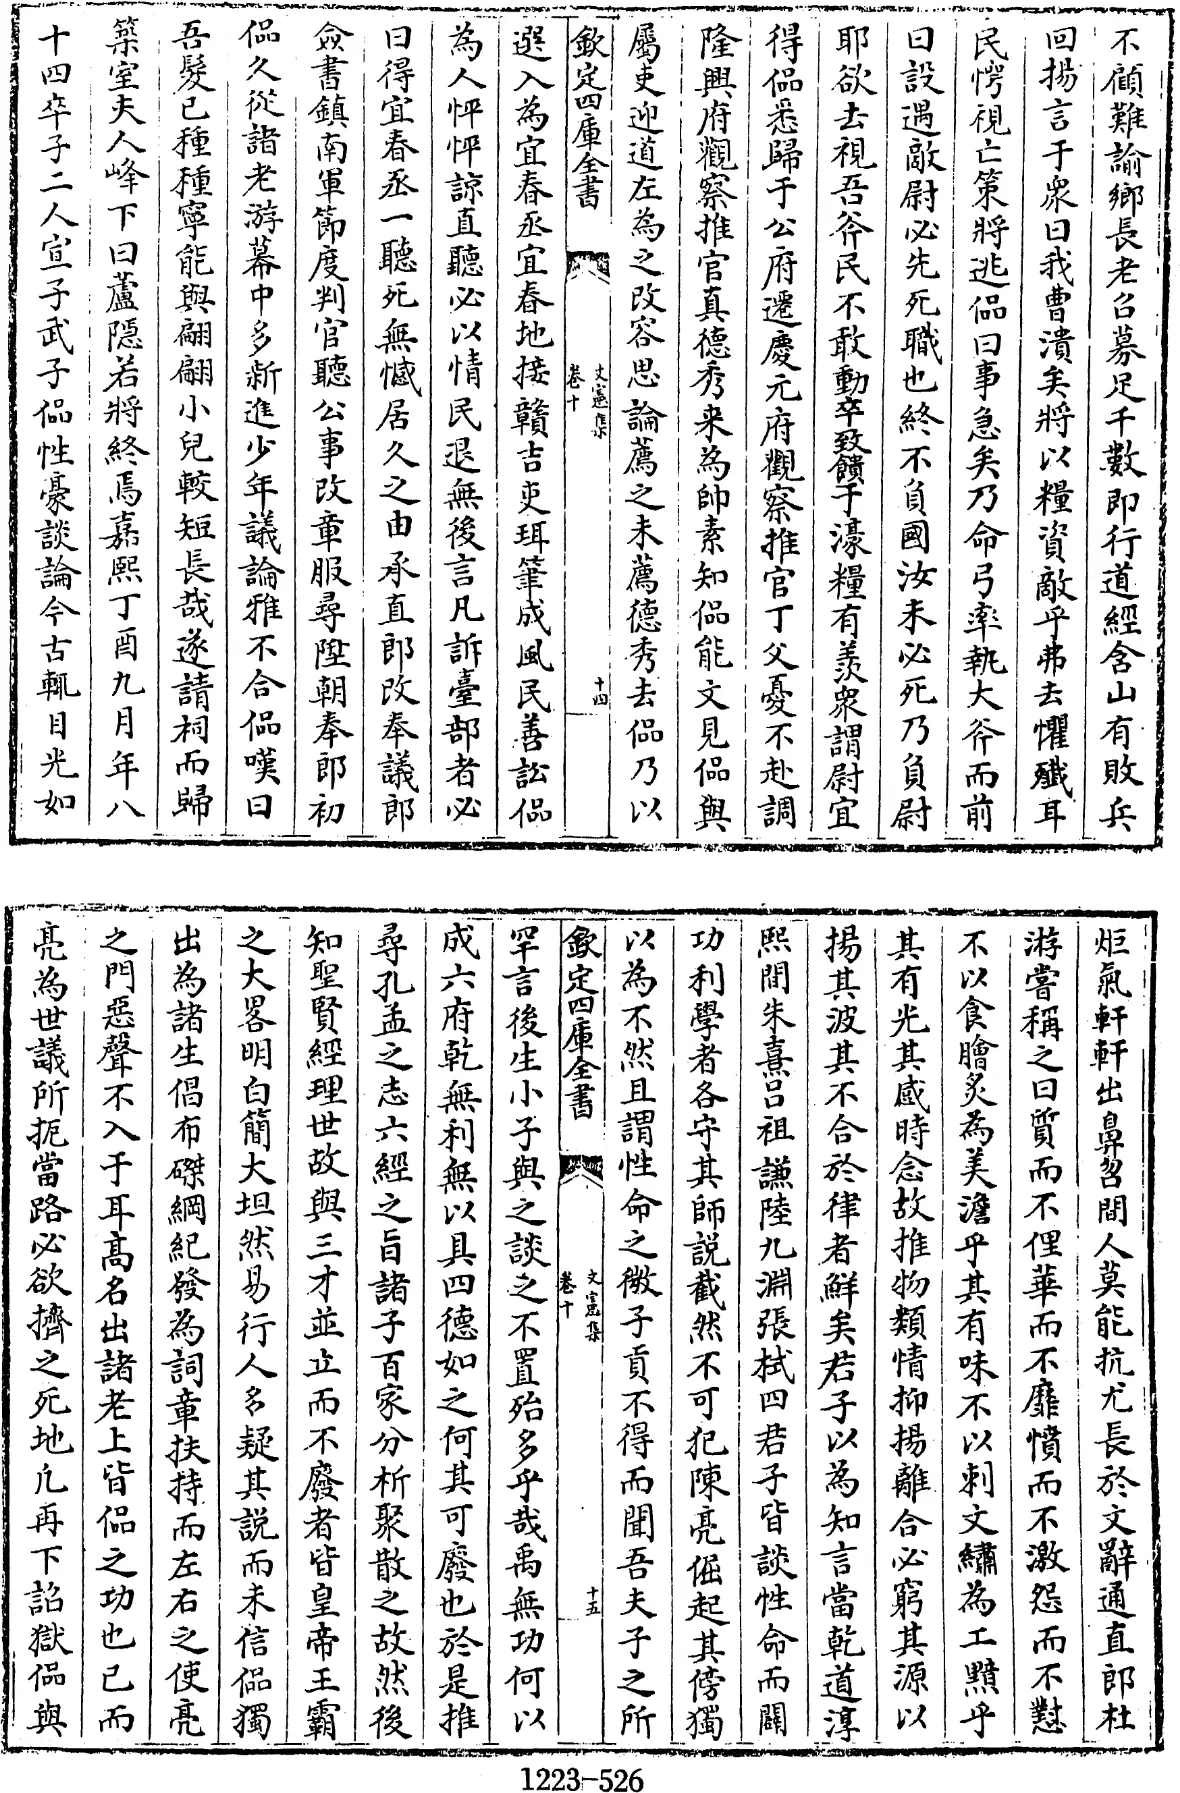 不顧難諭鄉長老召募足千數即行道經含山有敗兵
回揚言于衆曰我曹潰矣將以糧資敵乎弗去懼殱耳
民愕視亡策將逃侣曰事急矣乃命弓率執大斧而前
曰設遇敵尉必先死職也終不負國汝未必死乃負尉
耶欲去視吾斧民不敢動卒致饋于濠糧有羨衆謂尉宜
得侣悉歸于公府遷慶元府觀察推官丁父憂不赴調
隆興府觀察推官真德秀来為帥素知侣能文見侣與
屬吏迎道左為之改容思論薦之未薦德秀去侣乃以
欽定四庫全書
文憲集
卷十
十四
選入為宜春丞宜春地接贛吉吏珥筆成風民善訟侣
為人怦怦諒直聽必以情民退無後言凡訴臺部者必
曰得宜春丞一聽死無憾居久之由承直郎改奉議郎
僉書鎮南軍節度判官聽公事改章服尋陞朝奉郎初
侣久從諸老游幕中多新進少年議論雅不合侣嘆曰
吾髮已種種寧能與翩翩小兒較短長哉遂請祠而歸
築室夫人峰下曰蘆隱若將終焉嘉熙丁酉九月年八
十四卒子二人宣子武子侣性豪談論今古輒目光如
炬氣軒軒出鼻岩間人莫能抗尤長於文辭通直郎杜
游嘗稱之曰質而不俚華而不靡憤而不激怨而不懟
不以食膾炙為美澹乎其有味不以刺文繡為工黯乎
其有光其感時念故推物類情抑揚離合必窮其源以
揚其波其不合於律者鮮矣君子以為知言當乾道淳
熙間朱熹吕祖謙陸九淵張栻四君子皆談性命而闢
功利學者各守其師説截然不可犯陳亮倔起其傍獨
以為不然且謂性命之微子貢不得而聞吾夫子之所
欽定四庫全書
文憲集
卷十
十五
罕言後生小子與之談之不置殆多乎哉禹無功何以
成六府乾無利無以具四德如之何其可廢也於是推
尋孔孟之志六經之旨諸子百家分析聚散之故然後
知聖賢經理世故與三才並立而不廢者皆皇帝王霸
之大畧明白簡大坦然易行人多疑其説而未信侣獨
出為諸生倡布磔綱紀發為詞章扶持而左右之使亮
之門惡聲不入于耳高名出諸老上皆侣之功也已而
亮為世議所扼當路必欲擠之死地凢再下詔獄侣與
1223-526